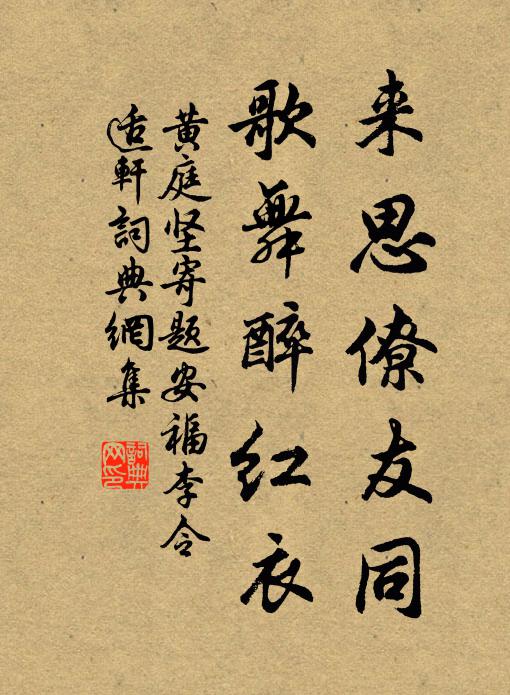 来思僚友同
歌舞醉红衣
黄庭坚寄题安福李令
适轩詞典網集
詞典网印